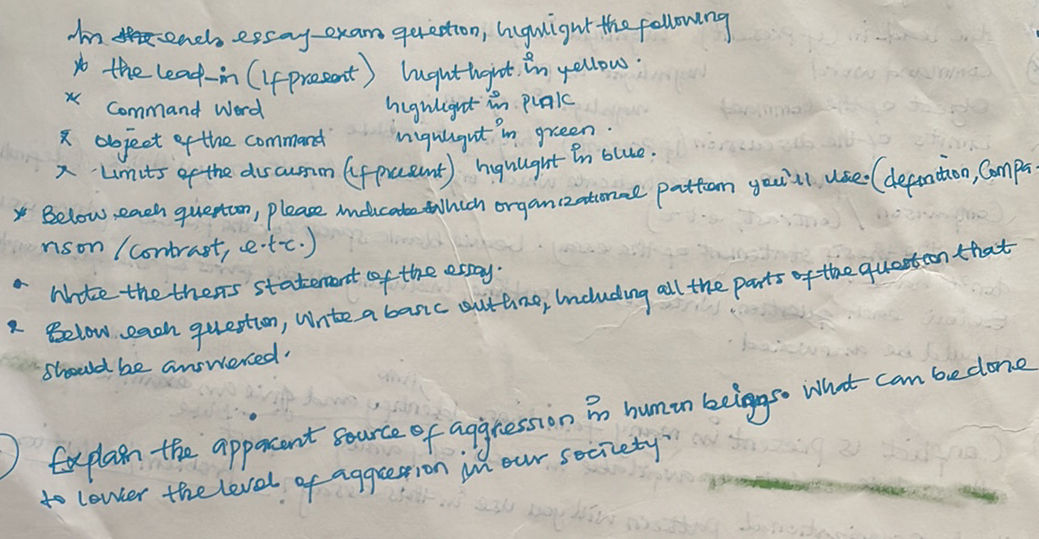 In the each essay-exam question, highlight the following
* the lead-in (If present) hughthght in yellow.
* Command Word highlight in PINK
* object of the command highlight in green.
* Limits of the discussion (if present) highlight in blue.
* Below each question, please indicate which organizational pattern you'll use. (definition, Compa-
rison / contrast, e.t.c.)
* Write the thesis statement of the essay.
* Below each question, write a basic outline, including all the parts of the question that
should be answered.
) Explain the apparent source of aggression in human beings. What can be done
to lower the level of aggression in our society